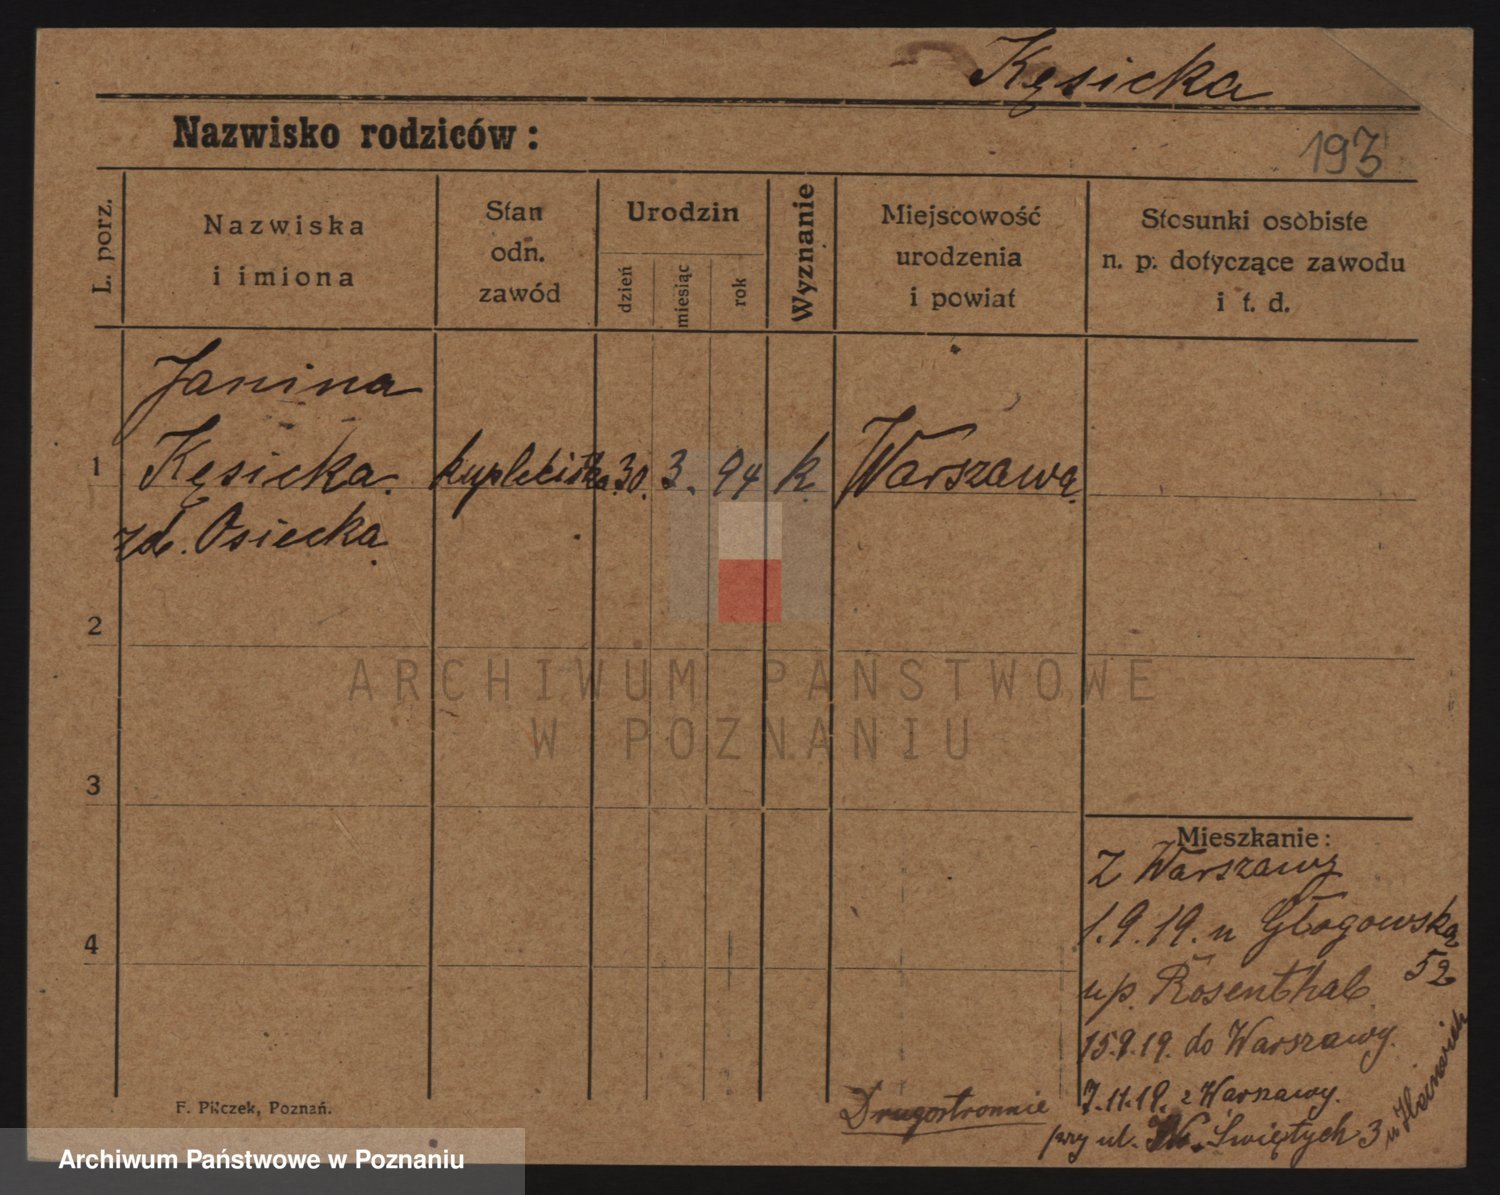 Kęsicka
Nazwisko rodziców:
193
L. porz.
Nazwiska
i imiona
Stan
odn.
zawód
Urodzin
dzień
miesiąc
rok
Wyznanie
Miejscowość
urodzenia
i powiat
Stosunki osobiste
n. p. dotyczące zawodu
i t. d.
Janina
1 Kęsicka. kupletistka. 30. 3. 94 k. Warszawa
zd. Osiecka.
2
3
4
Mieszkanie:
z Warszawy
1.9.19. u Głogowska
52
up. Rosenthal.
15.9.19. do Warszawy.
7.11.19. z Warszawy.
przy ul. W. Świętych 3
Drugostronnie
F. Pilczek, Poznań.
ARCHIWUM PAŃSTWOWE
W POZNANIU
Archiwum Państwowe w Poznaniu